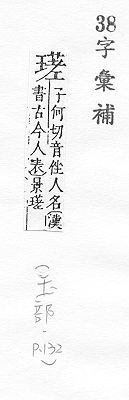 38
字彙補
瑳
子何切音侳人名漢
書古今人表景瑳
(玉部
p.132)